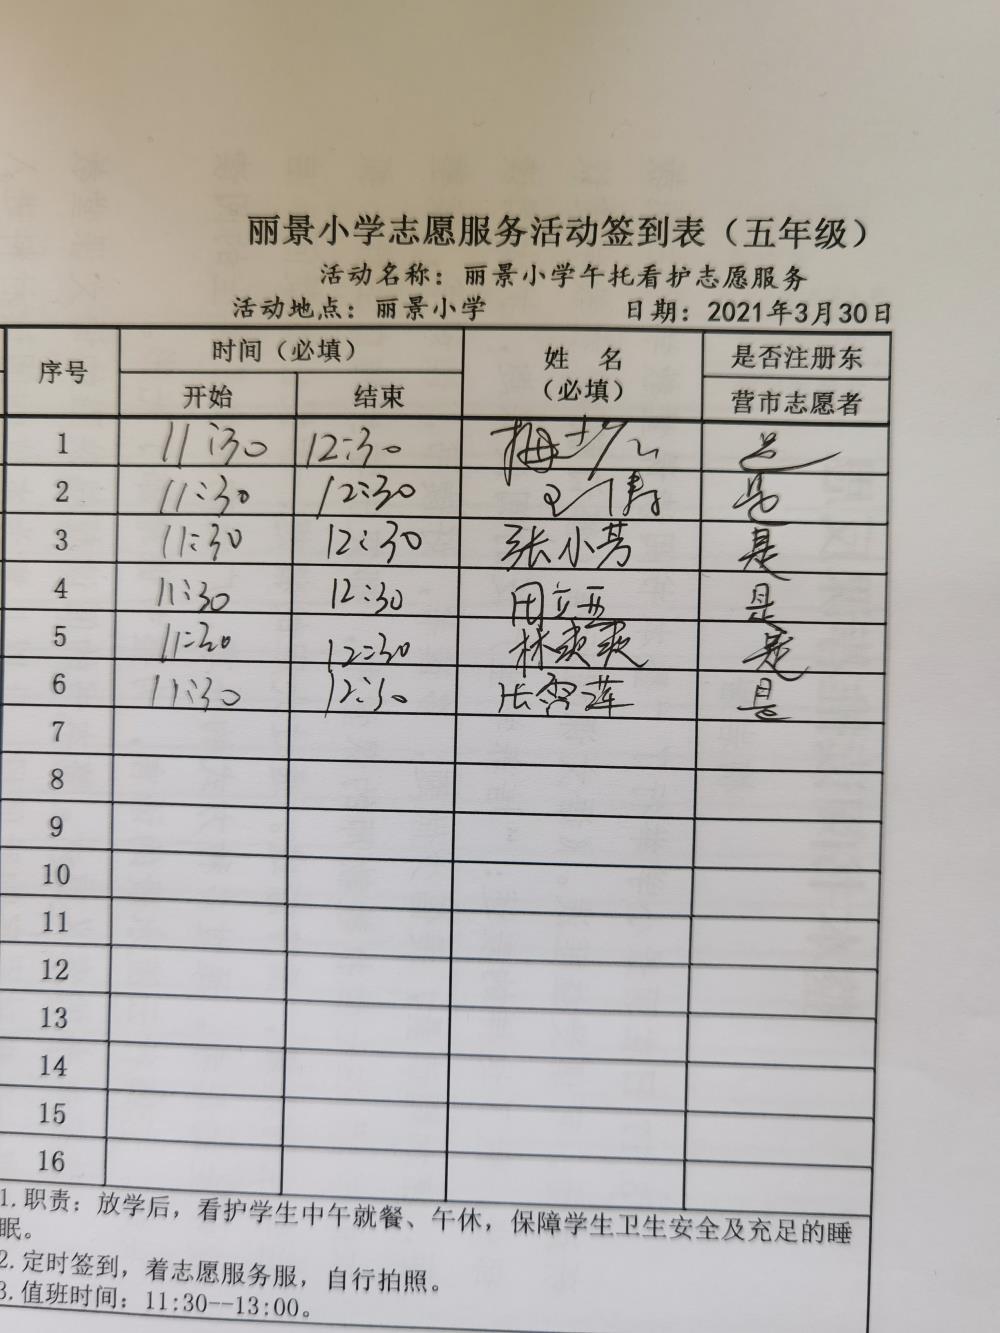 丽景小学志愿服务活动签到表（五年级）
活动名称：丽景小学午托看护志愿服务
活动地点：丽景小学 日期：2021年3月30日
序号 时间（必填） 姓 名 是否注册东
开始 结束 （必填） 营市志愿者
1 11:30 12:30 是
2 11:30 12:30 是
3 11:30 12:30 张小芳 是
4 11:30 12:30 田立亚 是
5 11:30 12:30 林爽爽 是
6 11:30 12:30 莲 是
7
8
9
10
11
12
13
14
15
16
1.职责：放学后，看护学生中午就餐、午休，保障学生卫生安全及充足的睡
眠。
2.定时签到，着志愿服务服，自行拍照。
3.值班时间：11:30--13:00。